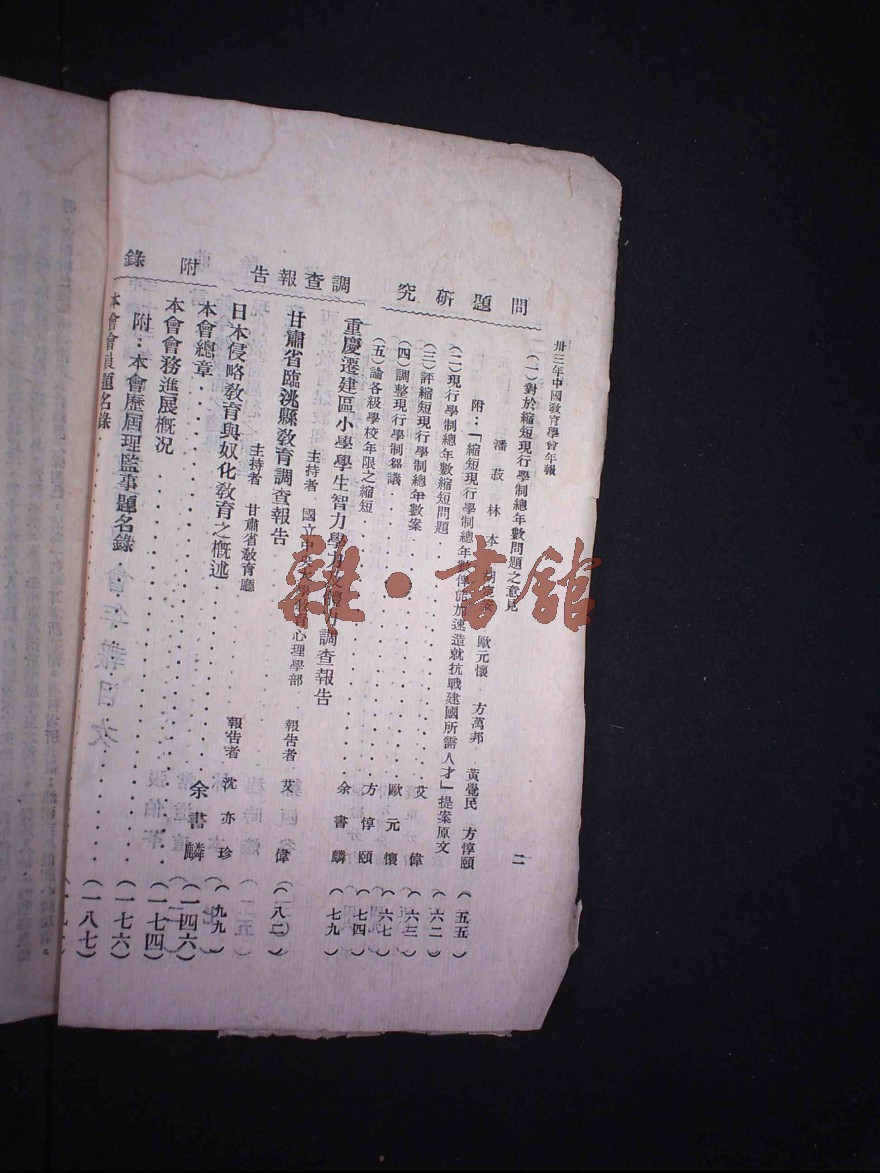 卅三年中國教育學會年報
二
問題研究
(一)對於縮短現行學制總年數問題之意見
潘菽 林本 歐元懷 方萬邦 黃覺民 方惇頤(五五)
附:「縮短現行學制總年數俾能加速造就抗戰建國所需人才」提案原文(六二)
(二)現行學制總年數縮短問題 艾偉(六三)
(三)評縮短現行學制總年數案 歐元懷(六七)
(四)調整現行學制芻議 方惇頤(七四)
(五)論各級學校年限之縮短 余書麟(七九)
調查報告
重慶遷建區小學學生智力學力調查報告
主持者 國立中央大學教育心理學部 報告者 艾偉(八二)
甘肅省臨洮縣教育調查報告
主持者 甘肅省教育廳 報告者 沈亦珍(九九)
日本侵略教育與奴化教育之槪述 余書麟(一四六)
附錄
本會總章
本會會務進展槪況(一七四)
附:本會歷屆理監事題名錄(一七六)
本會會員題名錄(一八七)
雜·書館